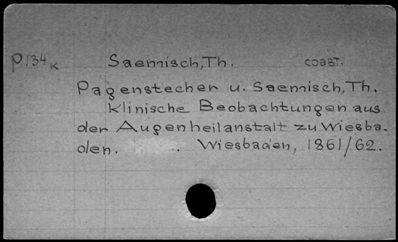 P134K Saemisch, Th. coабт.
Pagenstecher u. Saemisch, Th.
Klinische Beobachtungen aus
der Augenheilanstalt zu Wiesba-
den. Wiesbaden, 1861/62.